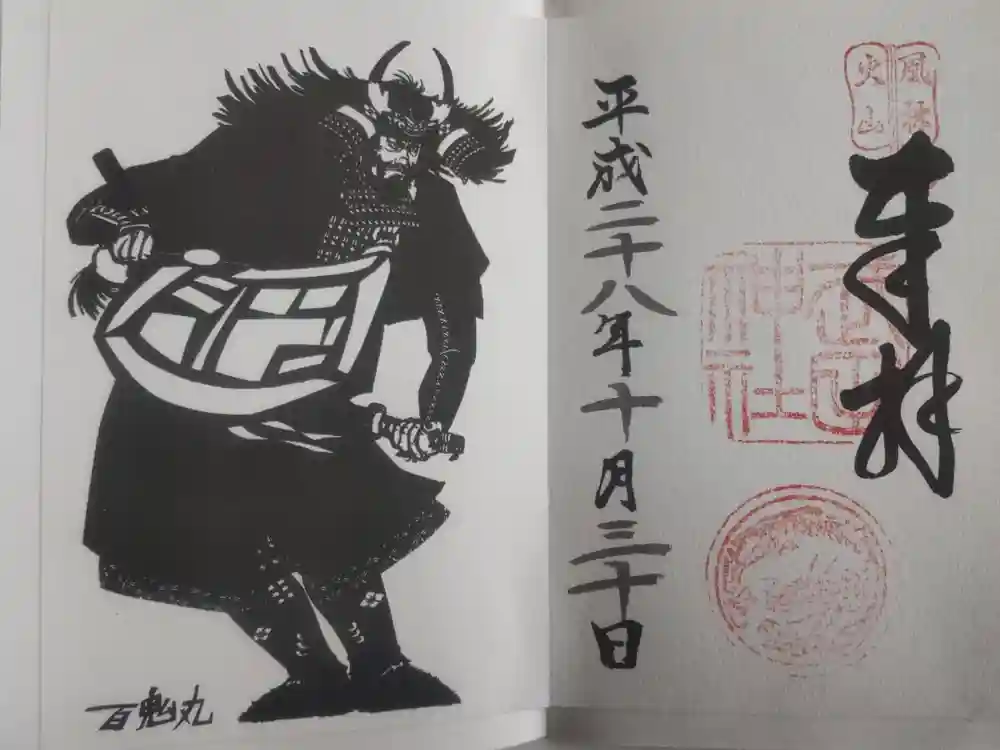 風林
火山
奉拝
武田
神社
平成二十八年十月三十日
百鬼丸